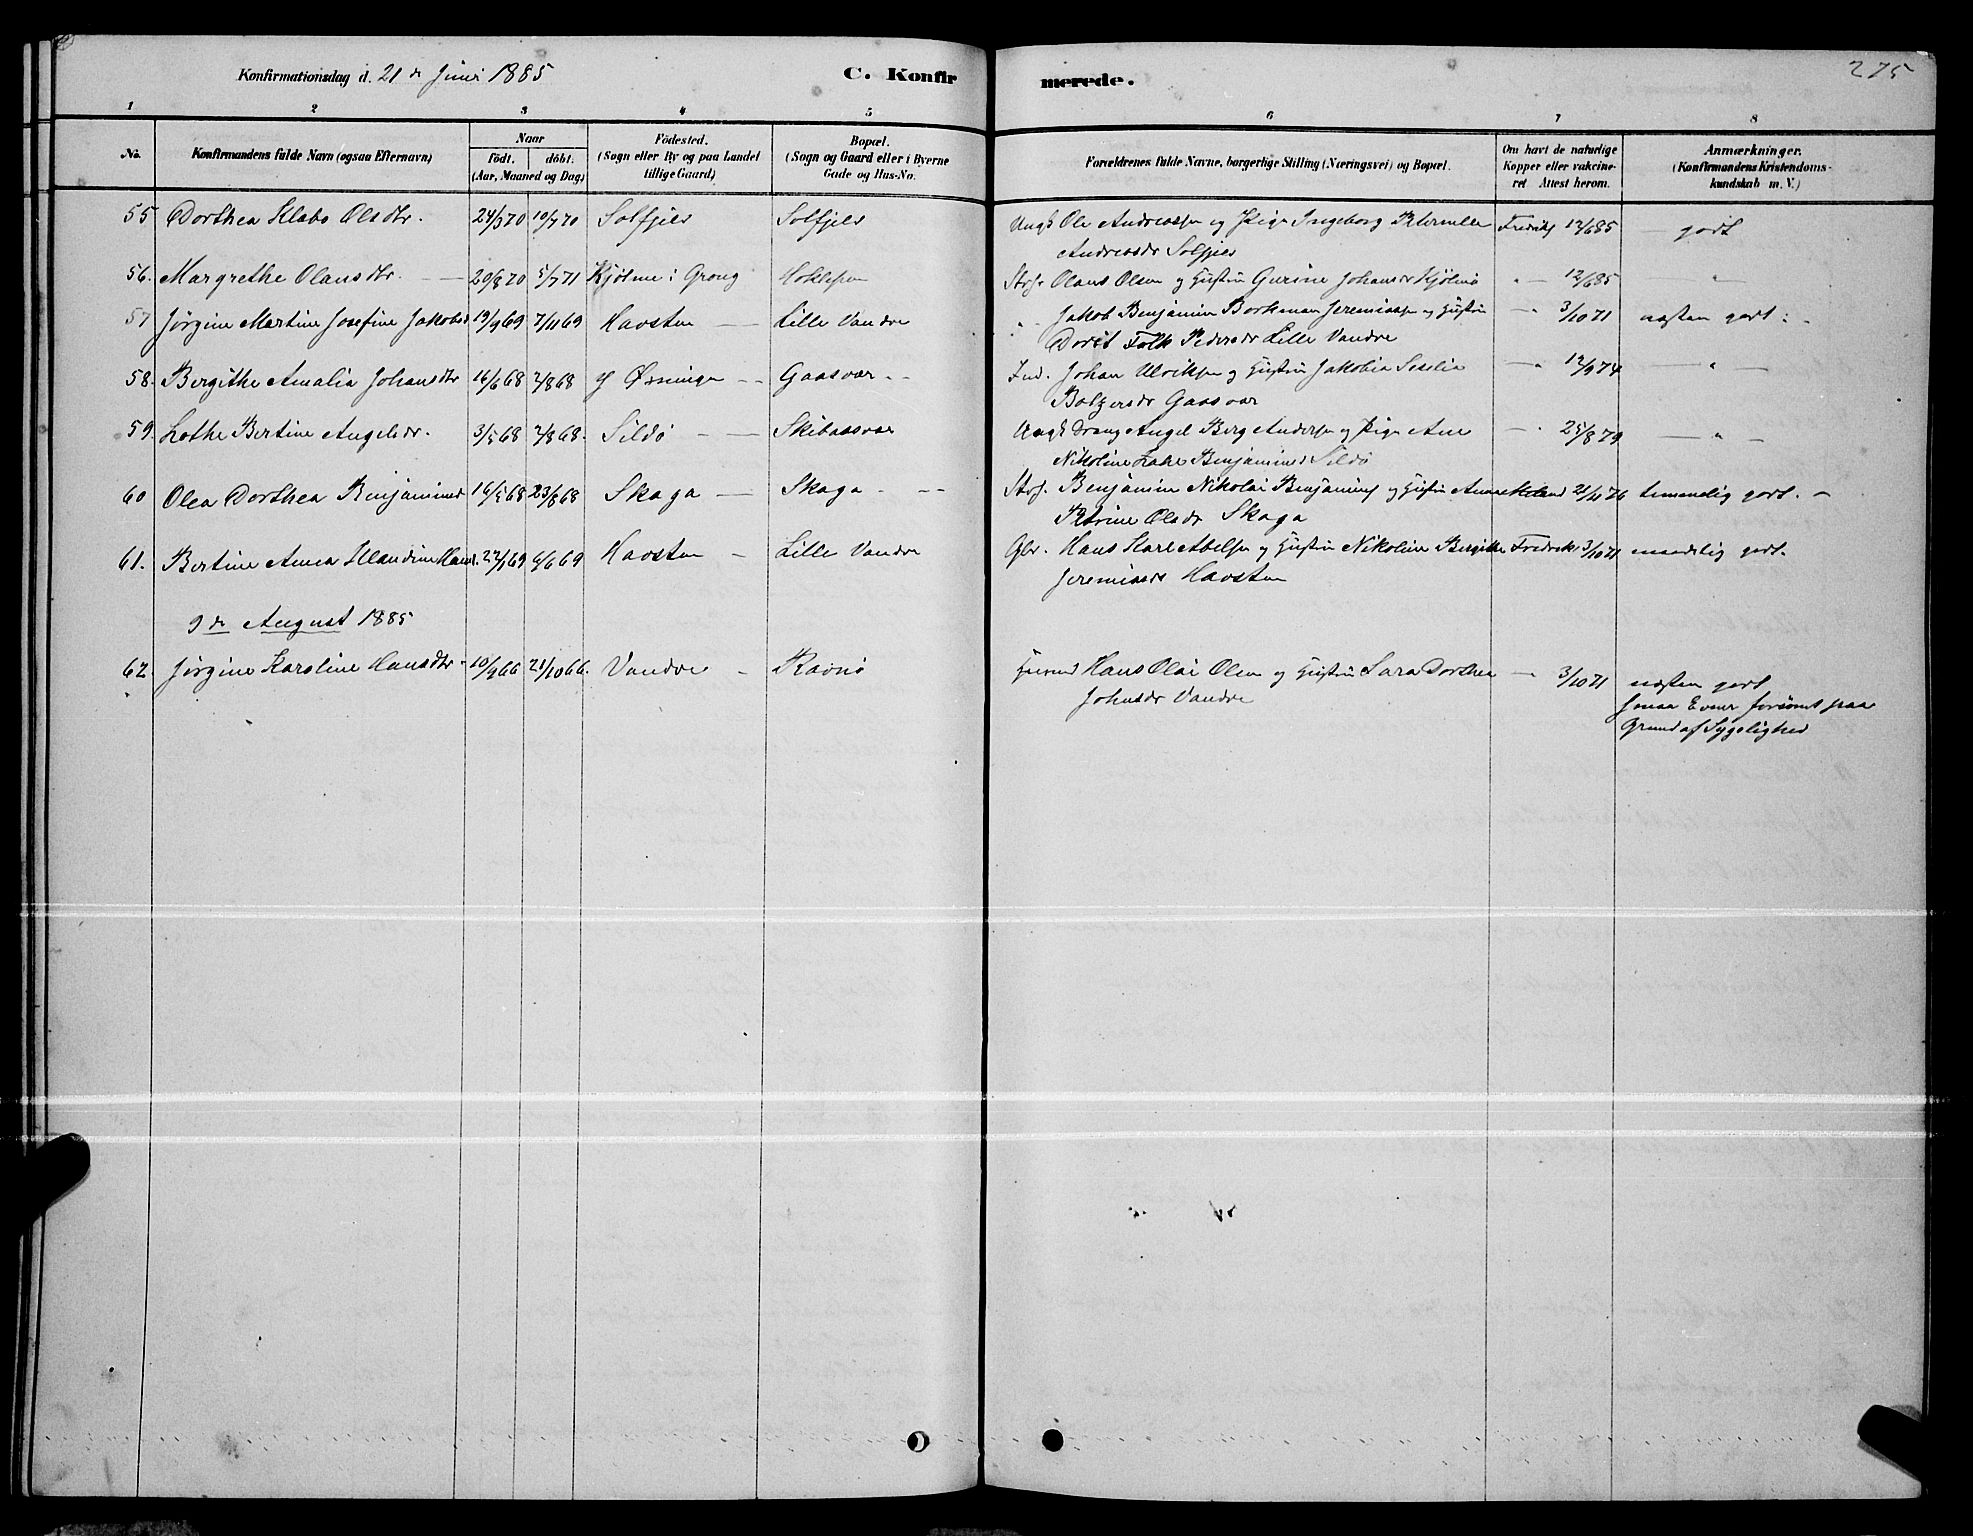 Konfirmationsdag d. 21de Juni 1885
C. Konfir
merede.
275
1 2 3 4 5 6 7 8
No.
Konfirmandens fulde Navn (ogsaa Efternavn)
Naar
födt. döbt.
(Aar, Maaned og Dag)
Födested.
(Sogn eller By og paa Landet
tillige Gaard)
Bopæl.
(Sogn og Gaard eller i Byerne
Gade og Hus-No.
Forældrenes fulde Navne, borgerlige Stilling (Næringsvei) og Bopæl.
Om havt de naturlige
Kopper eller vakcine-
ret Attest herom.
Anmærkninger.
(Konfirmandens Kristendoms-
kundskab m. V.)
55 Dorthea Klabo Olsdtr. 24/3 70 10/7 70 Solfjeld Solfjeld Ungk Ole Andreassen og Pige Ingeborg Peternille Fredriks 12/6 85 — godt
Andreasdr Solfjeld
56. Margrethe Olausdtr. — 20/8 70 5/7 71 Kjölme i Grong Strf. Olaus Olsen og Hustru Gurine Johansdr Kjölme " — 12/6 85 "
57 Jörgine Martine Josefine Jakobsd 19/9 69 7/11 69 Havsten — Lille Vandve " " Jakob Benjamin Borkman Jeremiassen og Hustru — " 3/10 71 næsten godt :
Dorit Falk Pedersdr Lille Vandve
58. Bergithe Amalia Johansdtr 16/6 68 2/8 68 Gaasvær Ind. Johan Ulriksen og Hustru Jakobia Seselia — " 12/9 74 — " —
Gaasvær
59. Lothe Bertine Angelsdr. 3/5 68 2/8 68. Sildö — — Skibaasvær Ungk Dreng Angel Berg Andersen og Pige Ane — " 25/8 79 — " —
Nikoline Benjaminsd Sildö
60 Olea Dorthea Benjaminsd 16/5 68 23/8 68 Skaga — Skaga Strf. Benjamin Nikolai Benjamins og Hustru Anne 21/11 76 temmelig godt.
Petrine Olsdr Skaga
61. Bertine Anna Klaudine Hansd. 22/1 69 6/6 69 Havsten — Lille Vandve Gbr. Hans Karl Abelsen og Hustru Nikoline Bergitte Fredriks 3/10 71 maadelig godt.
Jeremiasdr Havsten
9de August 1885
62. Jörgine Karoline Hansdtr. 10/9 66 21/10 66. Vandve — Ravnö Hans Olai Olsen og Hustru Sara Dorthea — " 3/10 71 næsten godt
Johnsdr Vandve
smaa Evner forsömt paa
Grund af Sygelighed